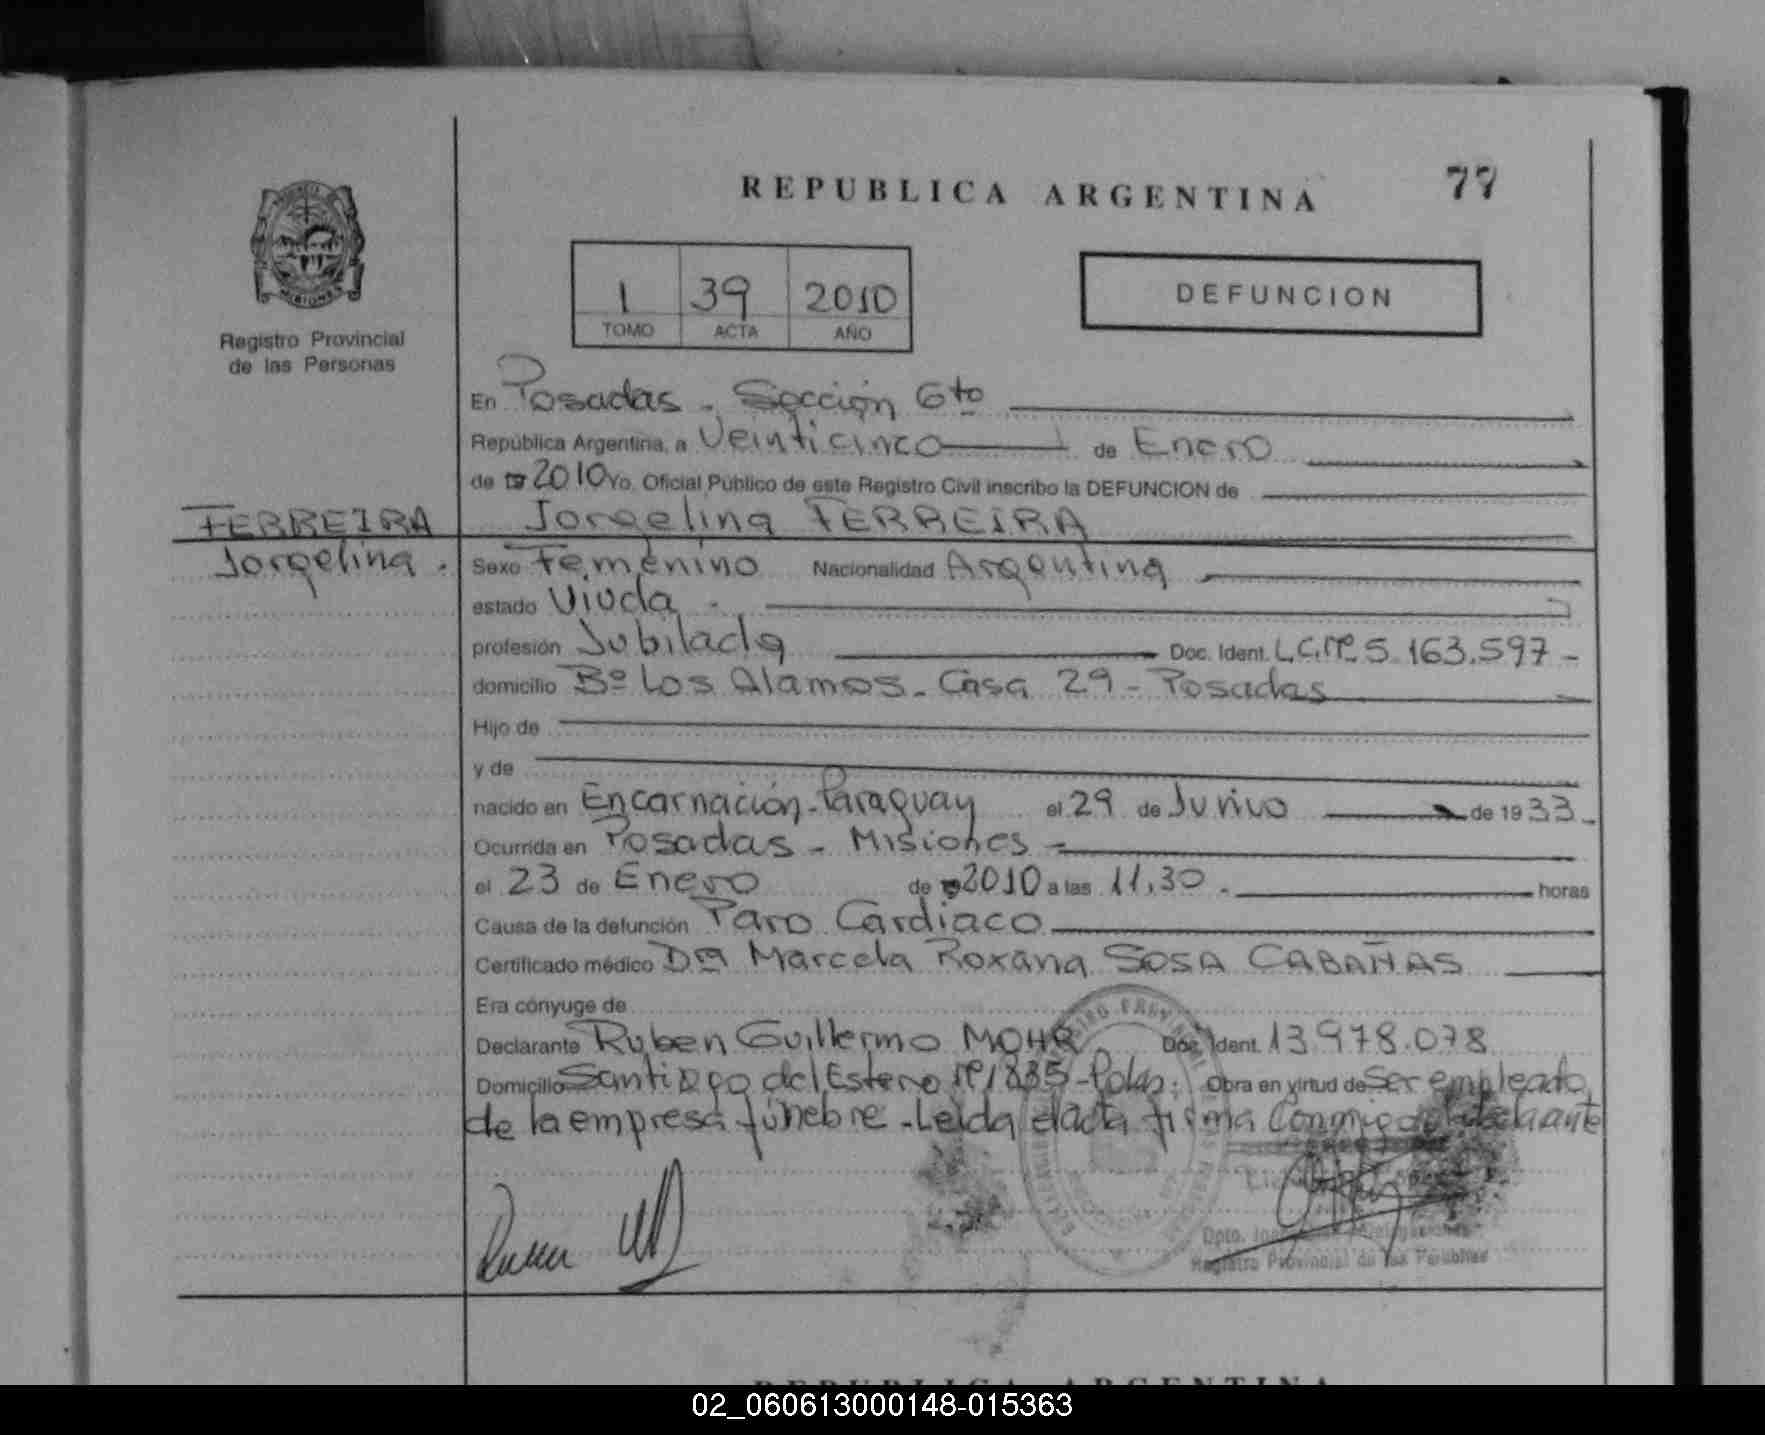 REPUBLICA ARGENTINA
77
1 39 2010
TOMO ACTA AÑO
DEFUNCION
MISIONES
Registro Provincial
de las Personas
En Posadas - Sección 6to
República Argentina, a Veinticinco de Enero
de 2010 Yo, Oficial Público de este Registro Civil inscribo la DEFUNCION de
FERREIRA
Jorgelina FERREIRA
Jorgelina.
Sexo Femenino Nacionalidad Argentina
estado Viuda.
profesión Jubilada Doc. Ident. L.C.Nº 5.163.597-
domicilio Bº Los Alamos - Casa 29 - Posadas
Hijo de
y de
nacido en Encarnación - Paraguay el 29 de Junio de 1933.
Ocurrida en Posadas - Misiones -
el 23 de Enero de 2010 a las 11,30. horas
Causa de la defunción Paro Cardiaco
Certificado médico Dra Marcela Roxana SOSA CABAÑAS
Era cónyuge de
Declarante Ruben Guillermo MOHR Doc. Ident. 13.978.078
Domicilio Santiago del Estero Nº 1835 - Pdas. Obra en virtud de Ser empleado
de la empresa fúnebre - Leída el acta firma conmigo el declarante
Dpto.
Registro Provincial de las Personas
REPUBLICA ARGENTINA
02_060613000148-015363